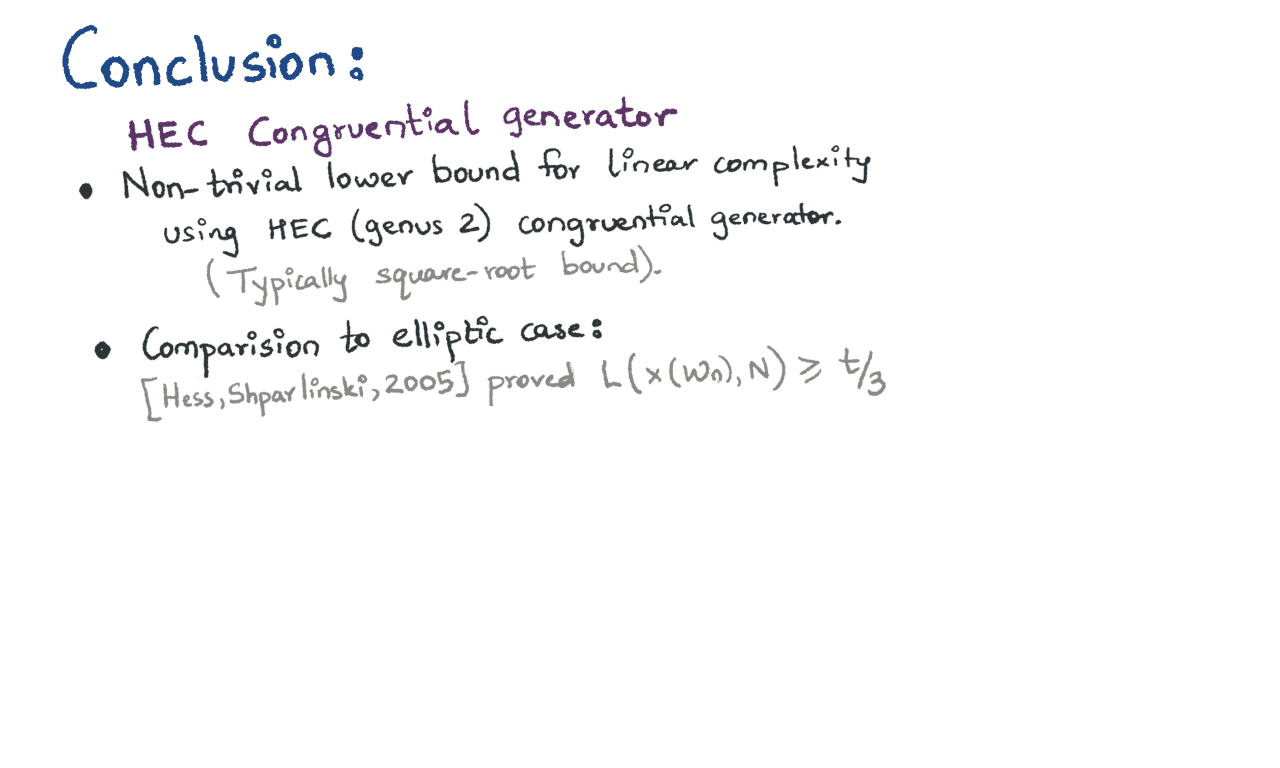 Conclusion:
HEC Congruential generator
• Non-trivial lower bound for linear complexity
using HEC (genus 2) congruential generator.
(Typically square-root bound).
• Comparision to elliptic case:
[Hess, Shparlinski, 2005] proved L(x(Wn), N) ⩾ t/3